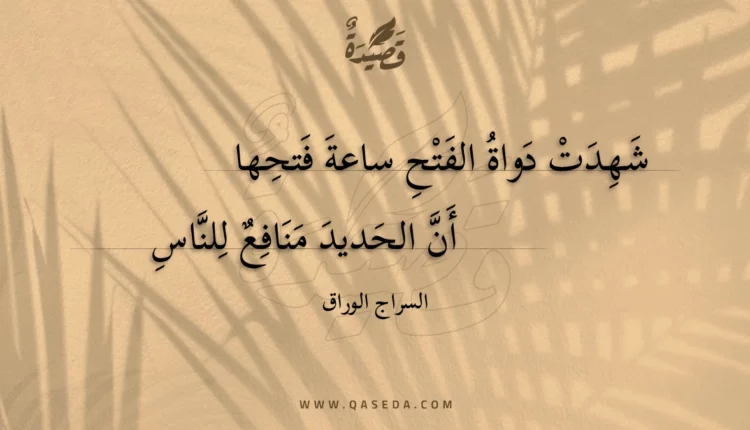 قَصِيْدَةٌ
شَهِدَتْ دَواةُ الفَتْحِ ساعةَ فَتحِها
أَنَّ الحَديدَ مَنَافِعٌ لِلنَّاسِ
السراج الوراق
WWW.QASEDA.COM